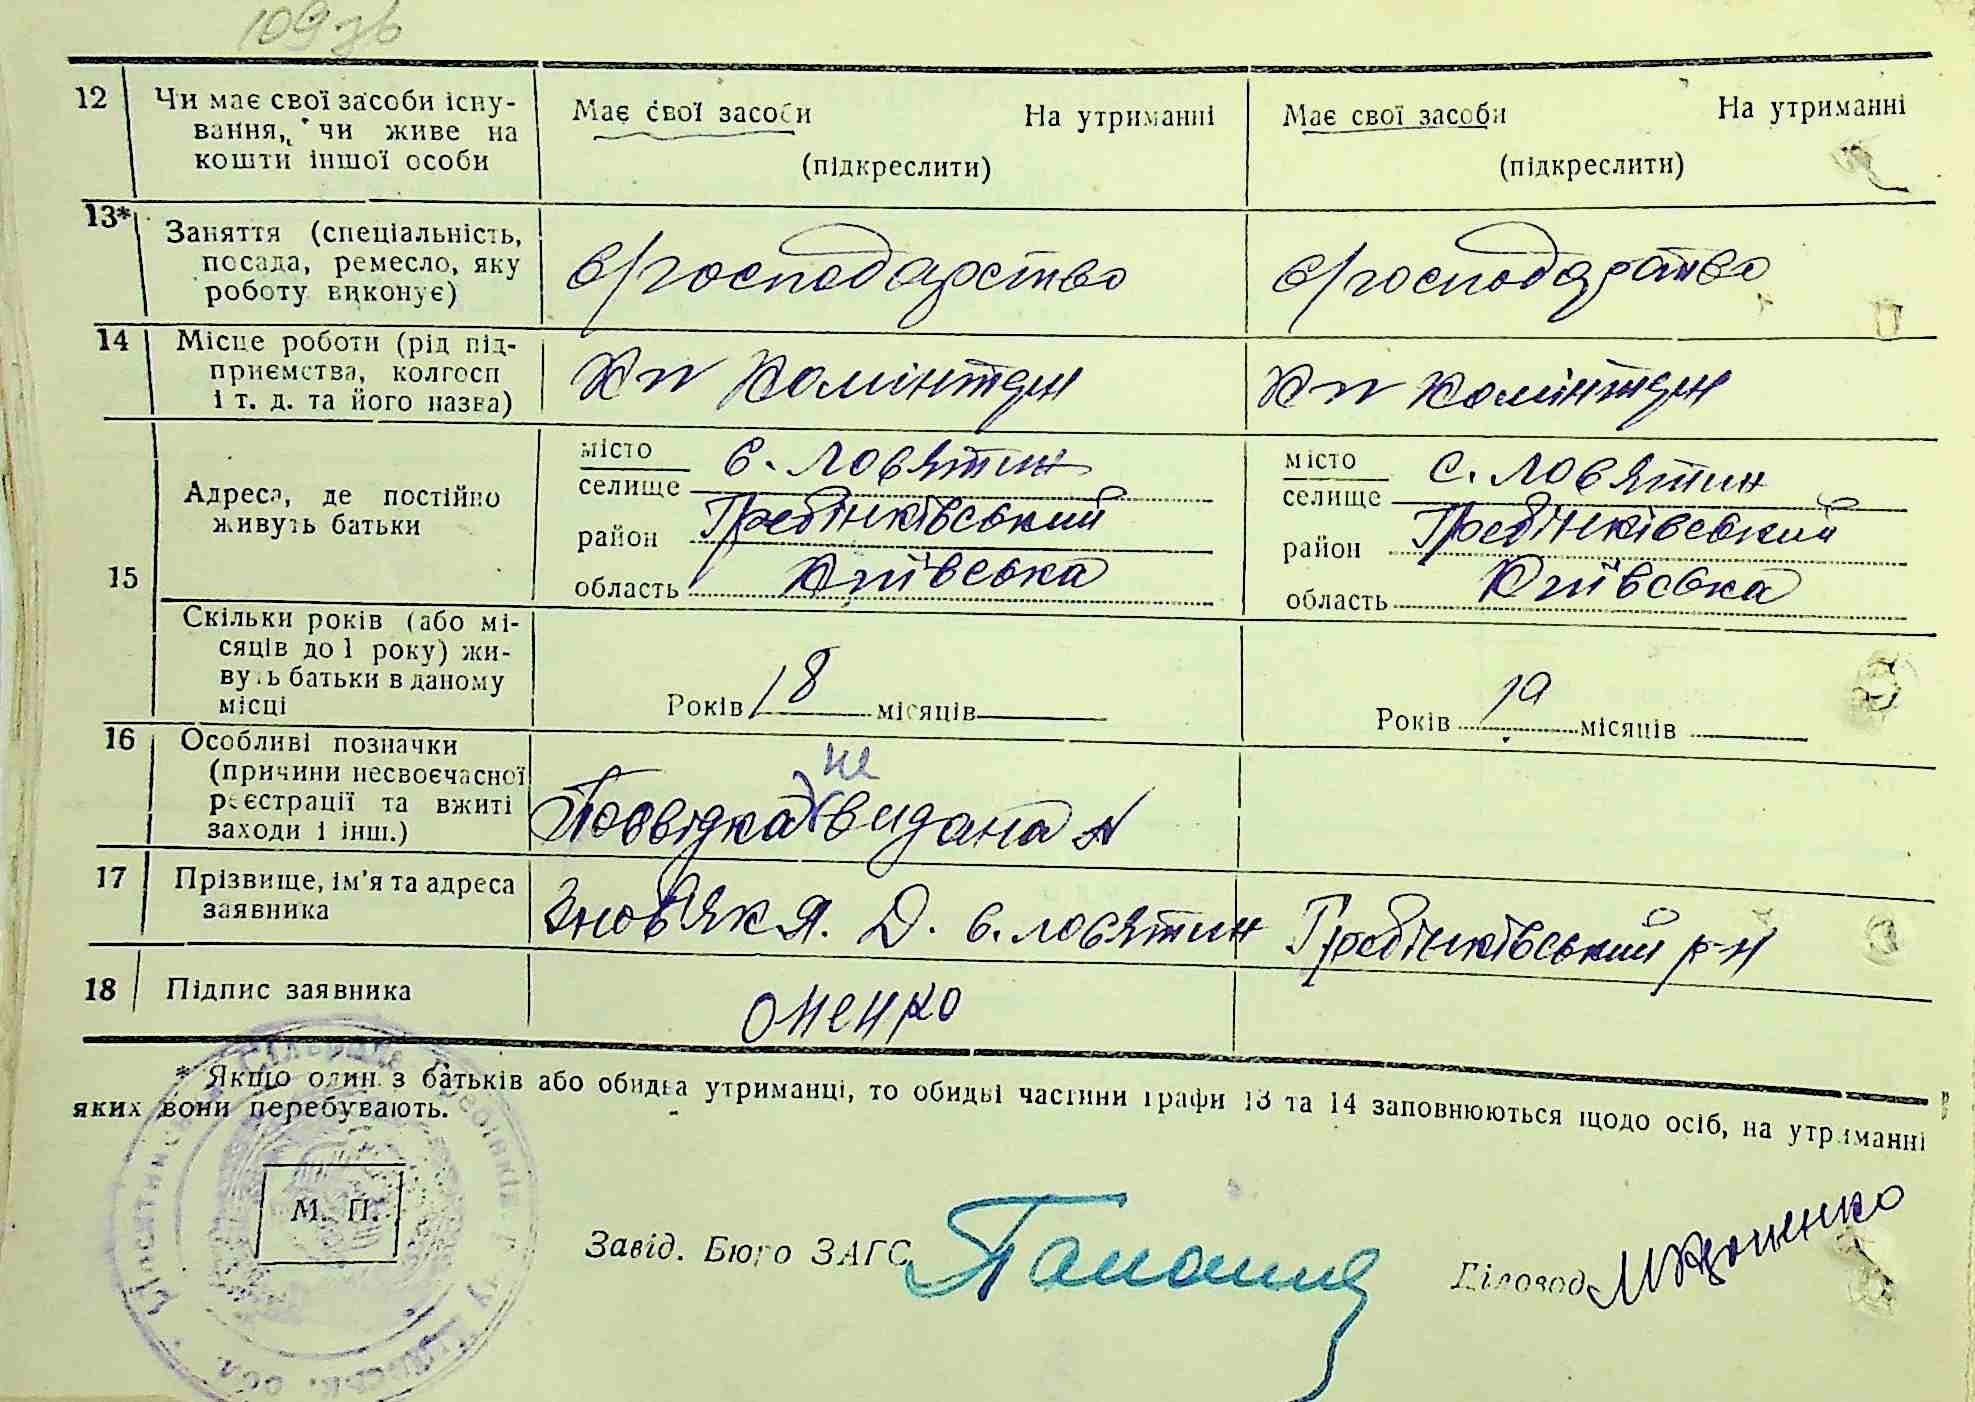 109 зв
12 Чи має свої засоби існу-
вання, чи живе на
кошти іншої особи
Має свої засоби На утриманні
(підкреслити)
Має свої засоби На утриманні
(підкреслити)
13* Заняття (спеціальність,
посада, ремесло, яку
роботу виконує)
с/господарство
с/господарство
14 Місце роботи (рід під-
приємства, колгосп
і т. д. та його назва)
Кп Комінтерн
Кп Комінтерн
15
Адреса, де постійно
живуть батьки
місто
селище с. Лосятин
район Гребінківський
область Київська
місто
селище с. Лосятин
район Гребінківський
область Київська
Скільки років (або мі-
сяців до 1 року) жи-
вуть батьки в даному
місці
Років 18 місяців
Років 19 місяців
16 Особливі позначки
(причини несвоєчасної
реєстрації та вжиті
заходи і інш.)
не
Посвідка видана
17 Прізвище, ім'я та адреса
заявника
Знов'як Я. Д. с. Лосятин Гребінківський р-н
18 Підпис заявника
* Якщо один з батьків або обидва утриманці, то обидві частини графи 13 та 14 заповнюються щодо осіб, на утриманні
яких вони перебувають.
М. П.
Завід. Бюро ЗАГС
Діловод